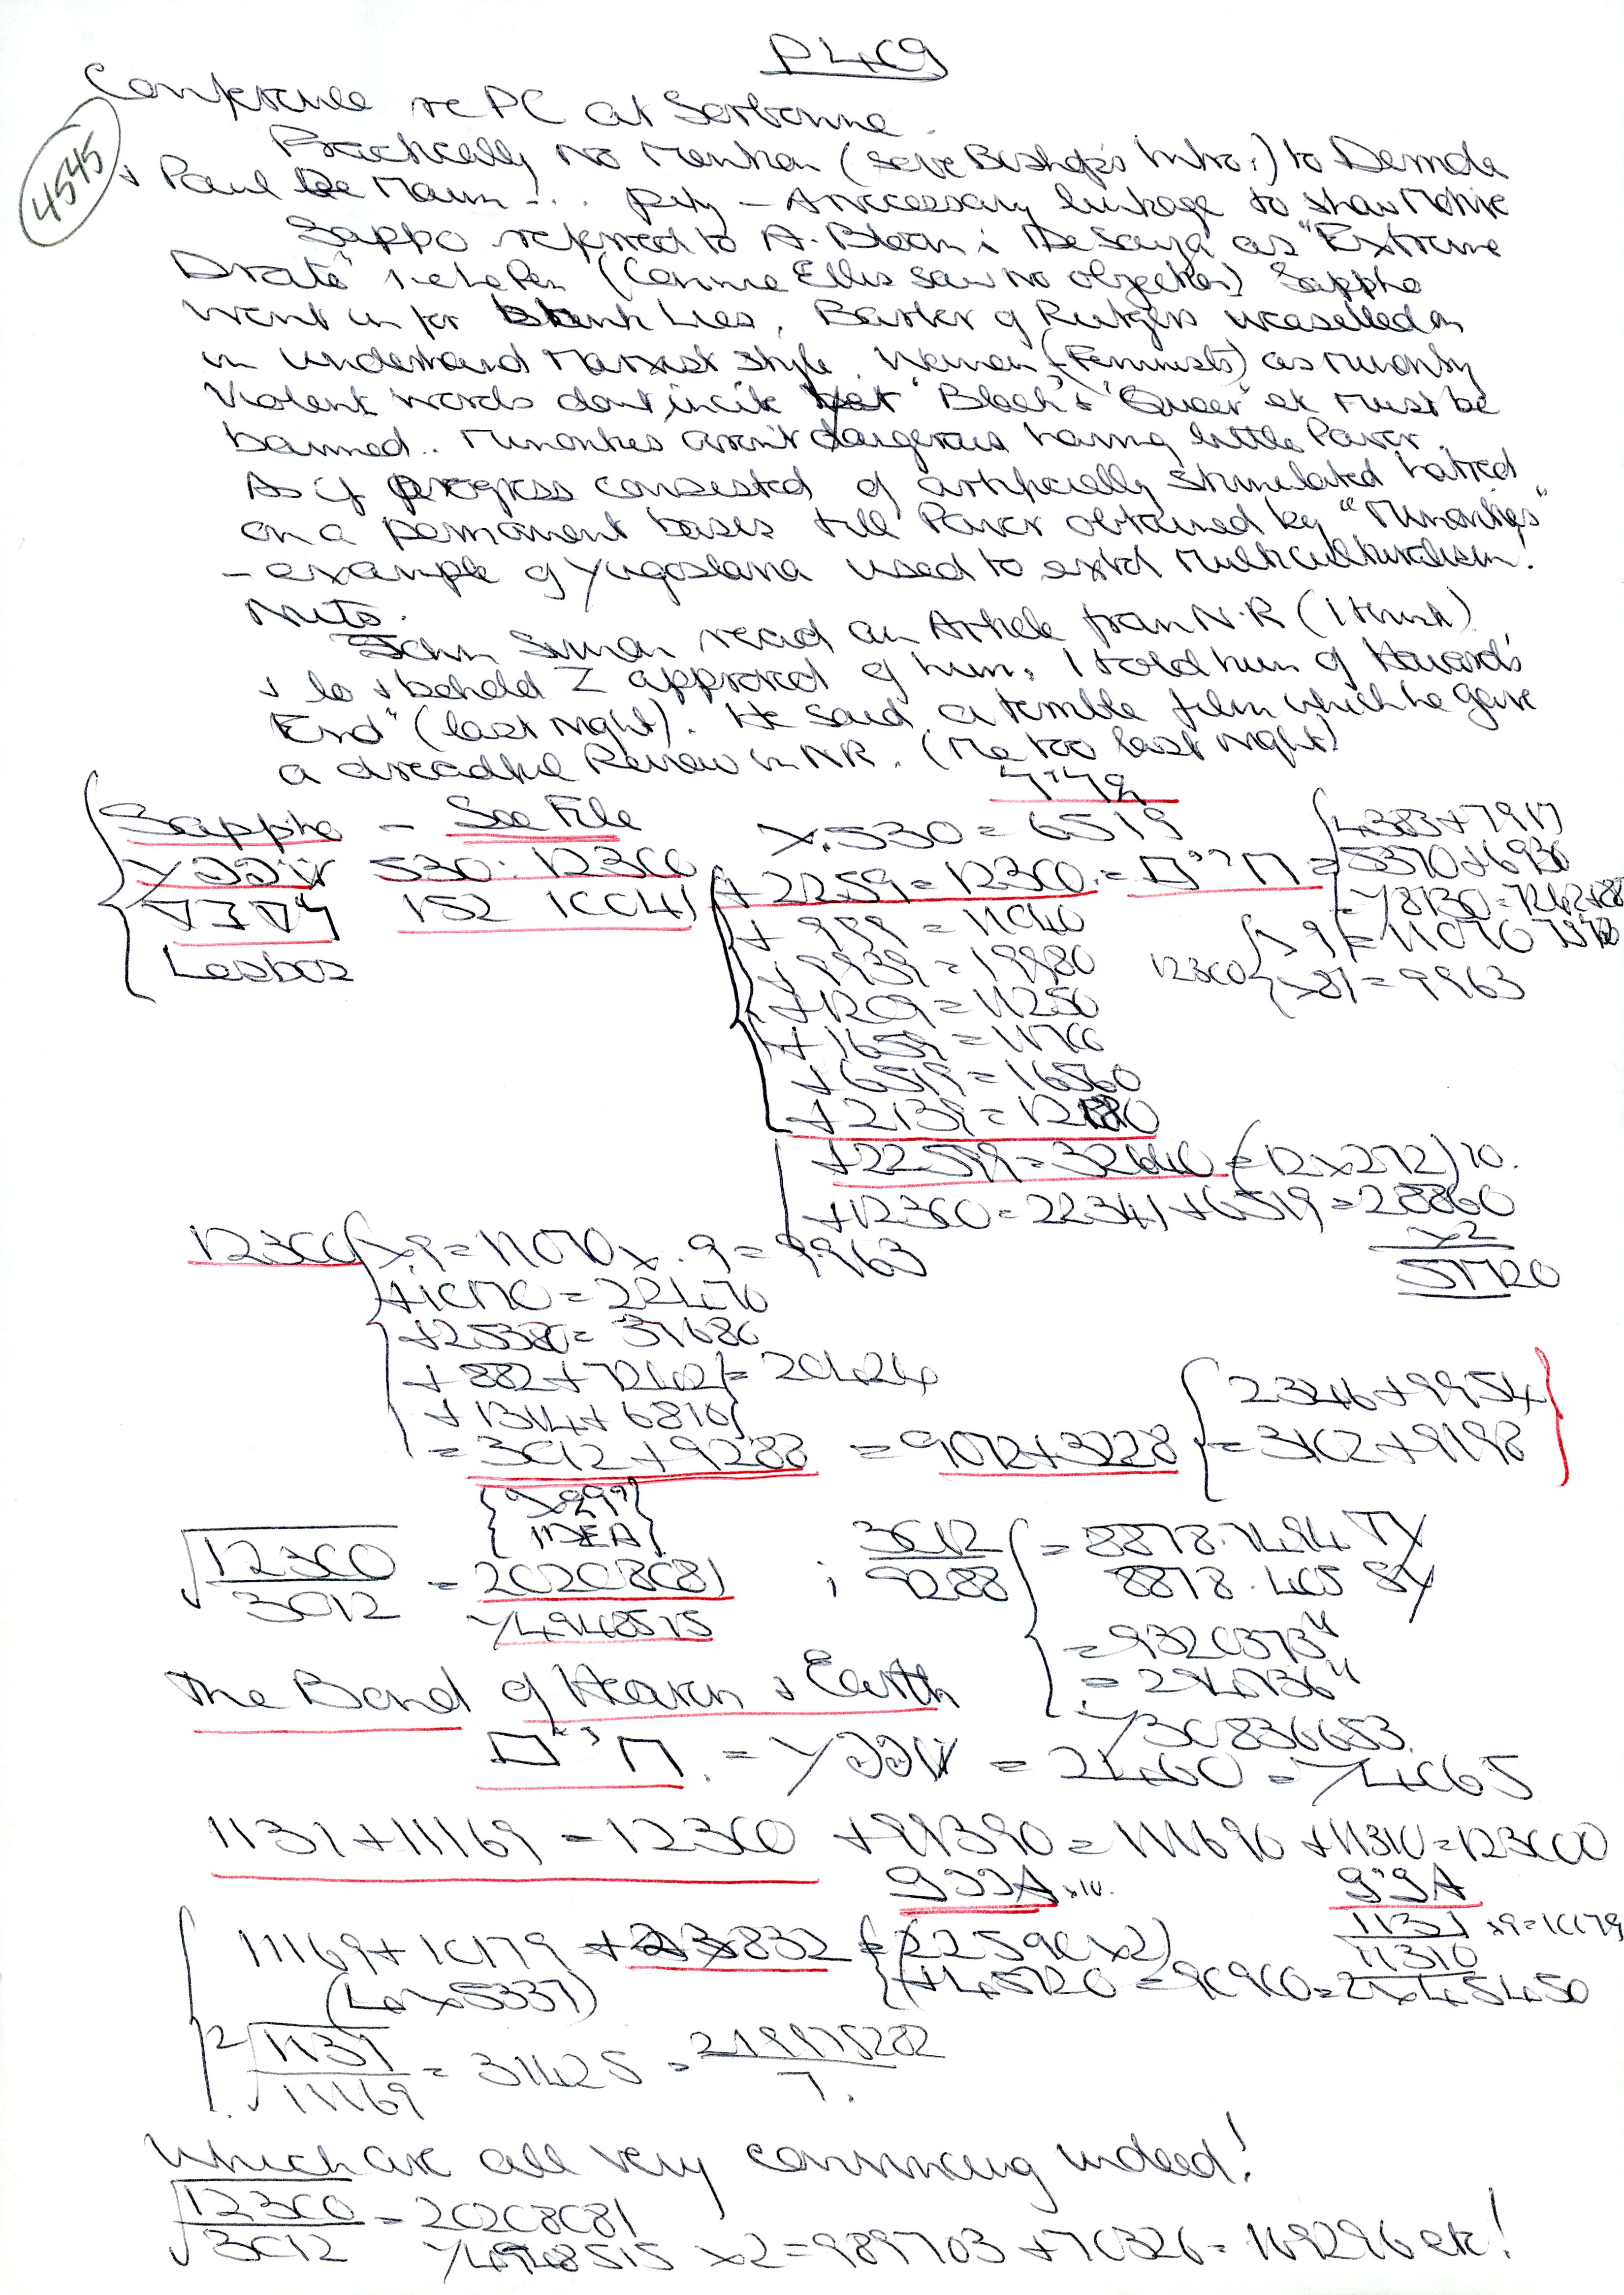 P4C9
4545
Conference re PC at Sorbonne.
Practically No Mention (save Bishop's Intro:) to Derrida
+ Paul De Mann -.. Pity - A necessary linkage to show Motive
Sappo referred to A. Bloom i as "Extreme
Droite" i.e. Le Pen (Corinne Ellis saw no objection) Sappho
went in for blank Lies. Barker of Rutgers weaselled on
in underhand Marxist style. Women (Feminists) as minority
Violent words don't incite yet "Black" & "Queer" etc must be
banned.. Minorities aren't dangerous having little Power.
As if progress consisted of artificially stimulated hatred
on a permanent basis till Power obtained by "Minorities"
- example of Yugoslavia used to extol Multiculturalism!
Nuts.
John Simon read an Article from N.R (I think)
+ lo + behold I approved of him. I told him of Howard's
End" (last night). He said a terrible film which he gave
a dreadful Review in NR. (Me too last night)
Sappho - See File
530 : 12300
152 10041
Lesbos
x.530 = 6519
+ 2259 = 12300 =
+ 999 = 11040
+ 9939 = 19980
+ 1209 = 11250
+ 1659 = 11700
+ 6519 = 16560
+ 2139 = 12180
+ 22599 = 32640 = (12x272)10.
+ 12300 = 22341 + 6519 = 28860
x2
57720
{4383 + 7917
= 5370 + 6930
12300 { x.9 = 11070
x81 = 9963
12300 { x.9 = 11070 x .9 = 9963
+ 10170 = 22470
+ 25380 = 37680
+ 882 + 7242 = 20424
+ 1314 + 6810
= 3012 + 9288 = 9072 + 3228 { 2346 + 9954
= 3102 + 9198 }
{"x299"
IDEA}
√12300/3012 = 20208081
Y4948515
; 3012/9288 { = 8878.7494 TY
8878.405 SY
= 9320373"
= 294736"
Y30836653.
The Bond of Heaven + Earth
= 2460 = Y4065
1131 + 11169 = 12300 + 99390 = 111690 + 11310 = 123000
11169 + 10179 832 = (22590 x2)
(4x5337) + 45720 = 90900 = 2x45450
1131 x9 = 10179
11310
12√1131/11169 = 31425 = 219975282/7.
Which are all very convincing indeed!
√12300/3012 = 20208081
Y4948515 x2 = 989703 + 70326 = 169296 etc!